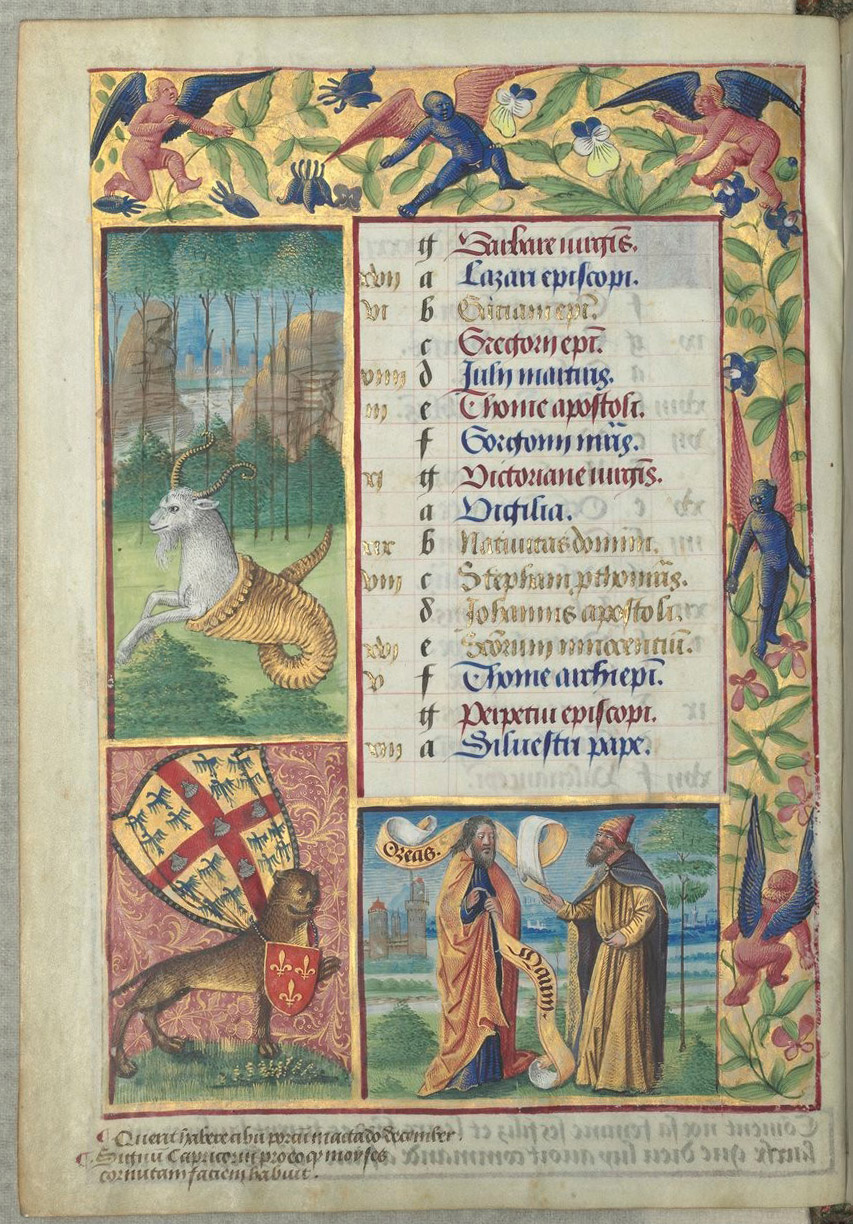 g Barbare virgis.
xvii a Lazari episcopi.
vi b Gaciani epi.
c Gregorii epi.
viiii d Julii martiris.
iii e Thome apostoli.
f Gorgonii mris.
xi g Victoriane virgis.
a Vigilia.
xix b Nativitas domini.
viii c Stephani pthomris.
d Johannis apostoli.
xvi e Scorum innocentium.
v f Thome archiepi.
g Perpetui episcopi.
xiii a Silvestri pape.
Ozeas.
¶ Querit habere cibu porcu mactado december
¶ Signu Capricorni pro eo qp moyses
cornutam faciem habuit.